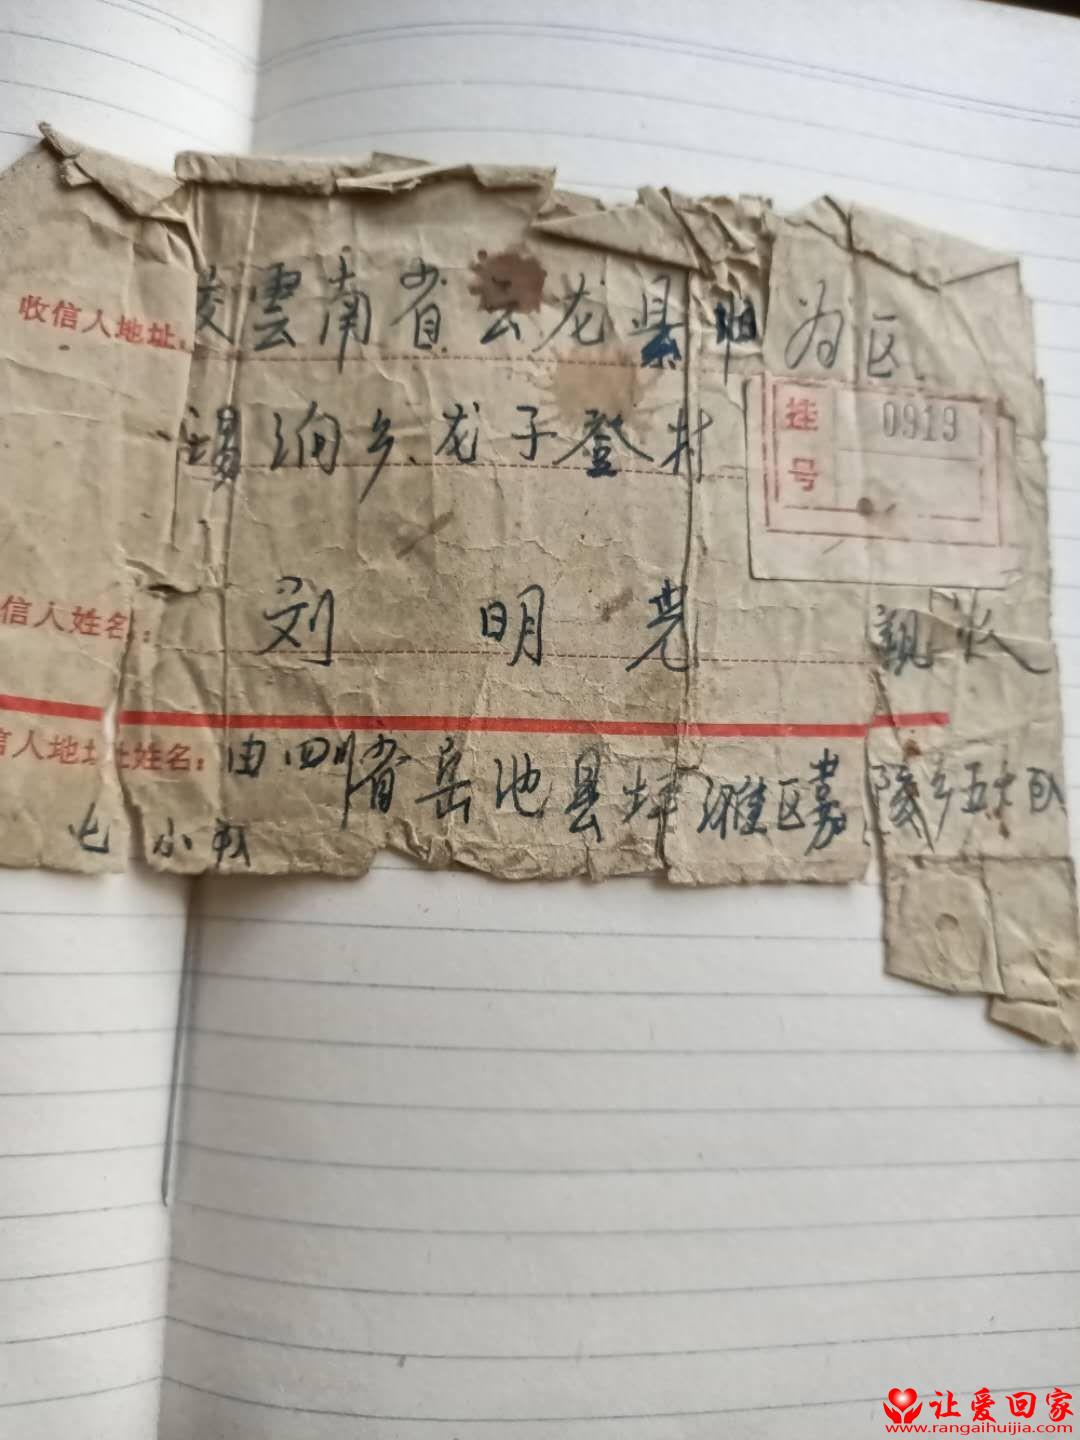 收信人地址：
雲南省云龙县 为区
锡 沟乡龙子登村
挂号 0919
信人姓名： 刘明光 親收
信人地址姓名：由四川省岳池县坪滩区嘉陵乡五大队
七小队
让爱回家
www.rangaihuijia.com